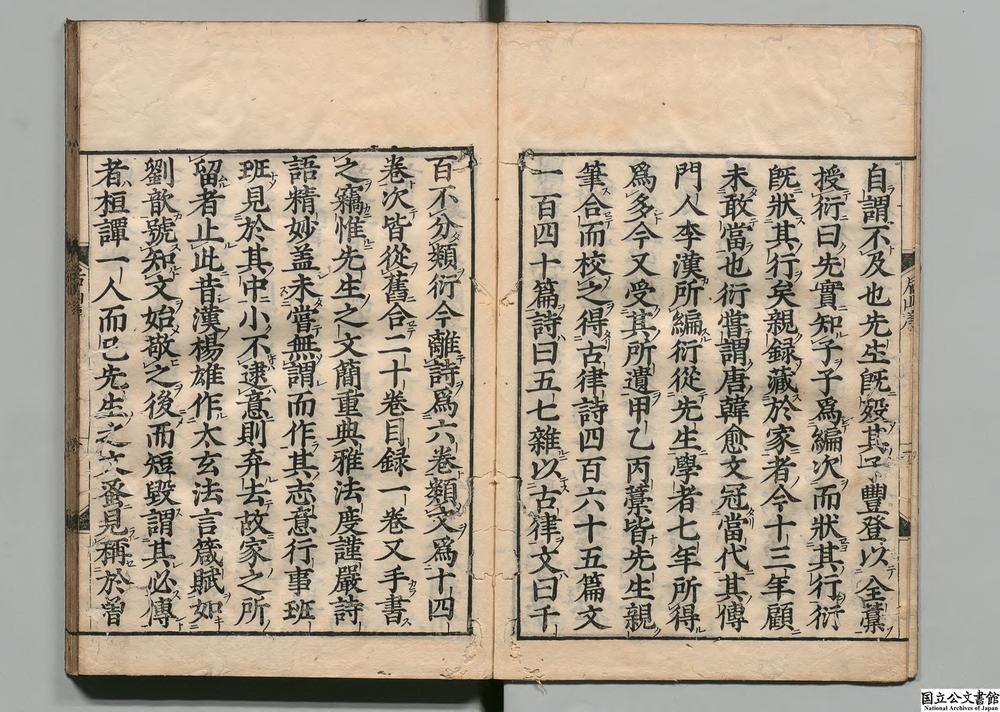 自謂不及也先生既歿其子豐登以全藁
授衍曰先實知子子爲編次而狀其行衍
既狀其行矣親録藏於家者今十三年顧
未敢當也衍嘗謂唐韓愈文冠當代其傳
門人李漢所編衍從先生學者七年所得
爲多今又受其所遺甲乙丙藁皆先生親
筆合而校之得古律詩四百六十五篇文
一百四十篇詩曰五七雜以古律文曰千
百不分類衍今離詩爲六卷類文爲十四
卷次皆從舊合二十卷目録一卷又手書
之竊惟先生之文簡重典雅法度謹嚴詩
語精妙盖未嘗無謂而作其志意行事班
班見於其中小不逮意則弃去故家之所
留者止此昔漢楊雄作太玄法言箴賦如
劉歆號知文始敬之後而短毀謂其必傳
者桓譚一人而已先生之文蚤見稱於曽
国立公文書館
National Archives of Japan